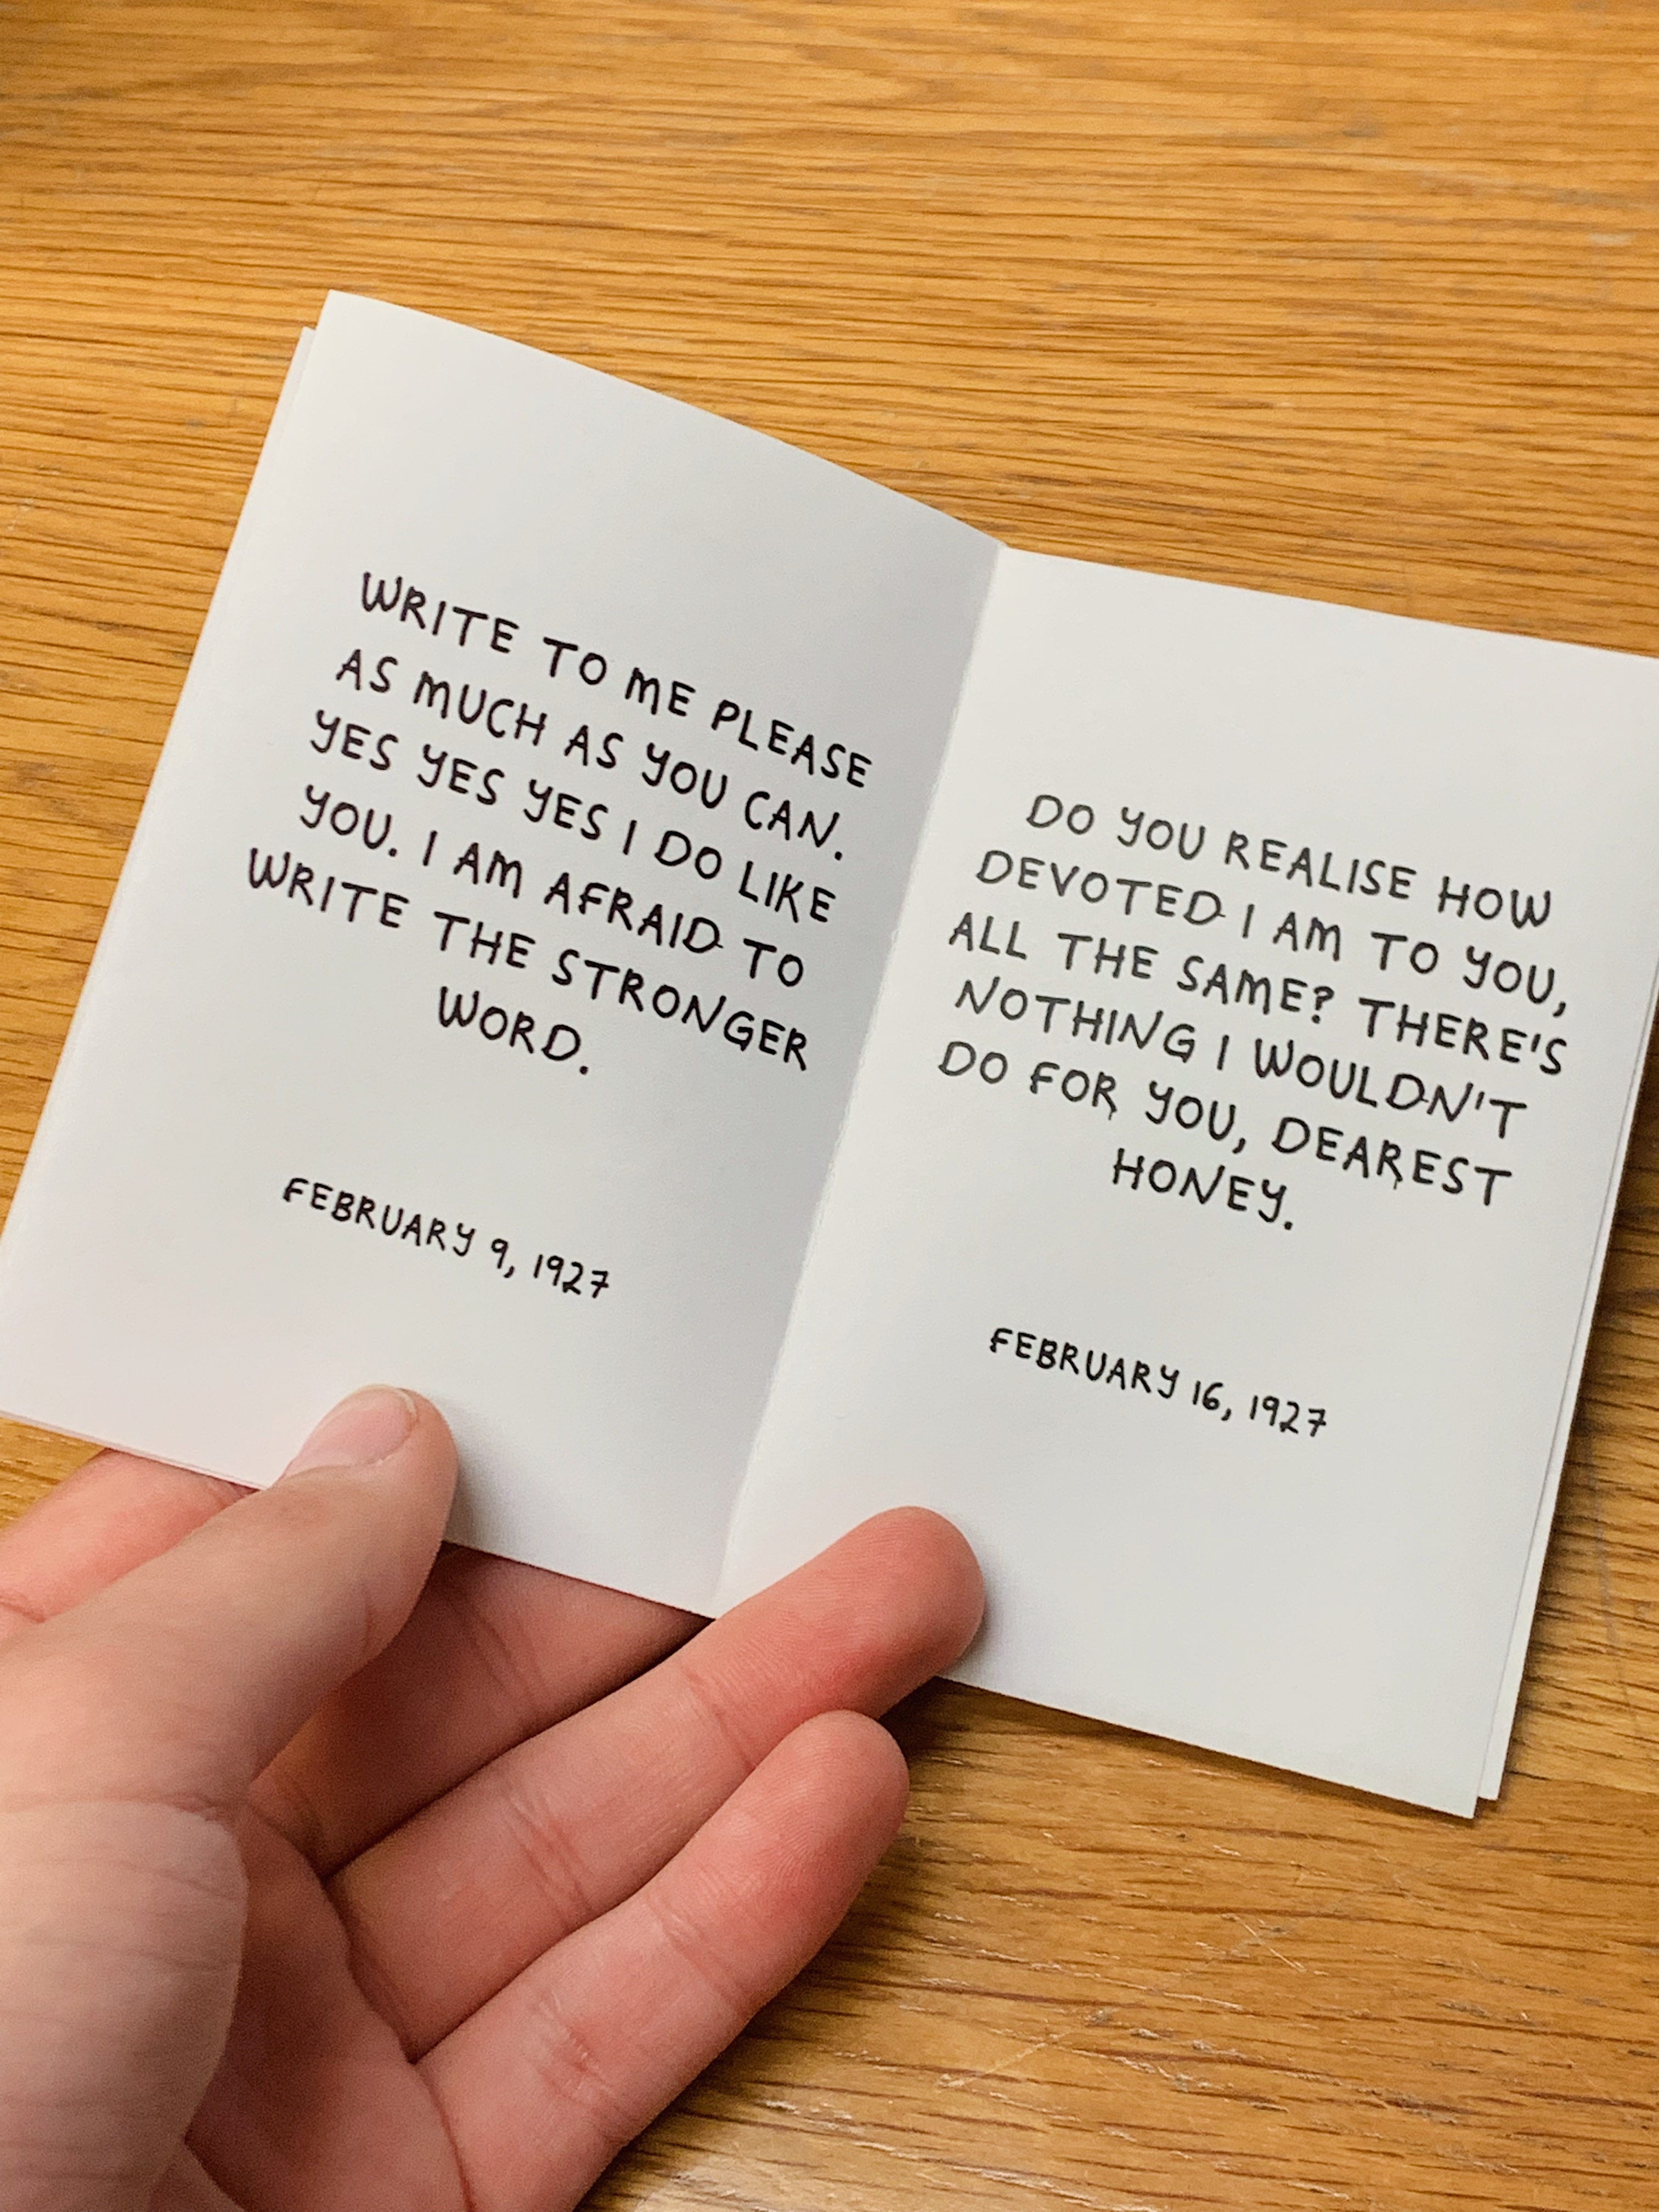 WRITE TO ME PLEASE
AS MUCH AS YOU CAN.
YES YES YES I DO LIKE
YOU. I AM AFRAID TO
WRITE THE STRONGER
WORD.
FEBRUARY 9, 1927
DO YOU REALISE HOW
DEVOTED I AM TO YOU,
ALL THE SAME? THERE'S
NOTHING I WOULDN'T
DO FOR YOU, DEAREST
HONEY.
FEBRUARY 16, 1927